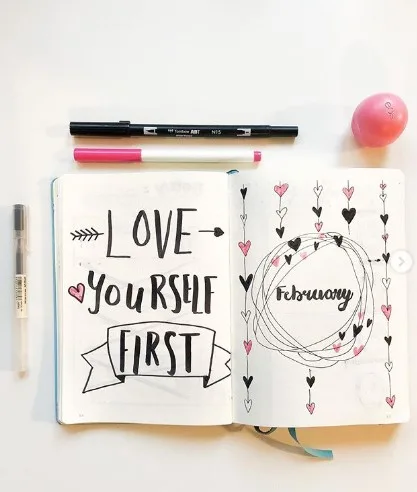 Tombow ABT N15
LOVE
YOURSELF
FIRST
February